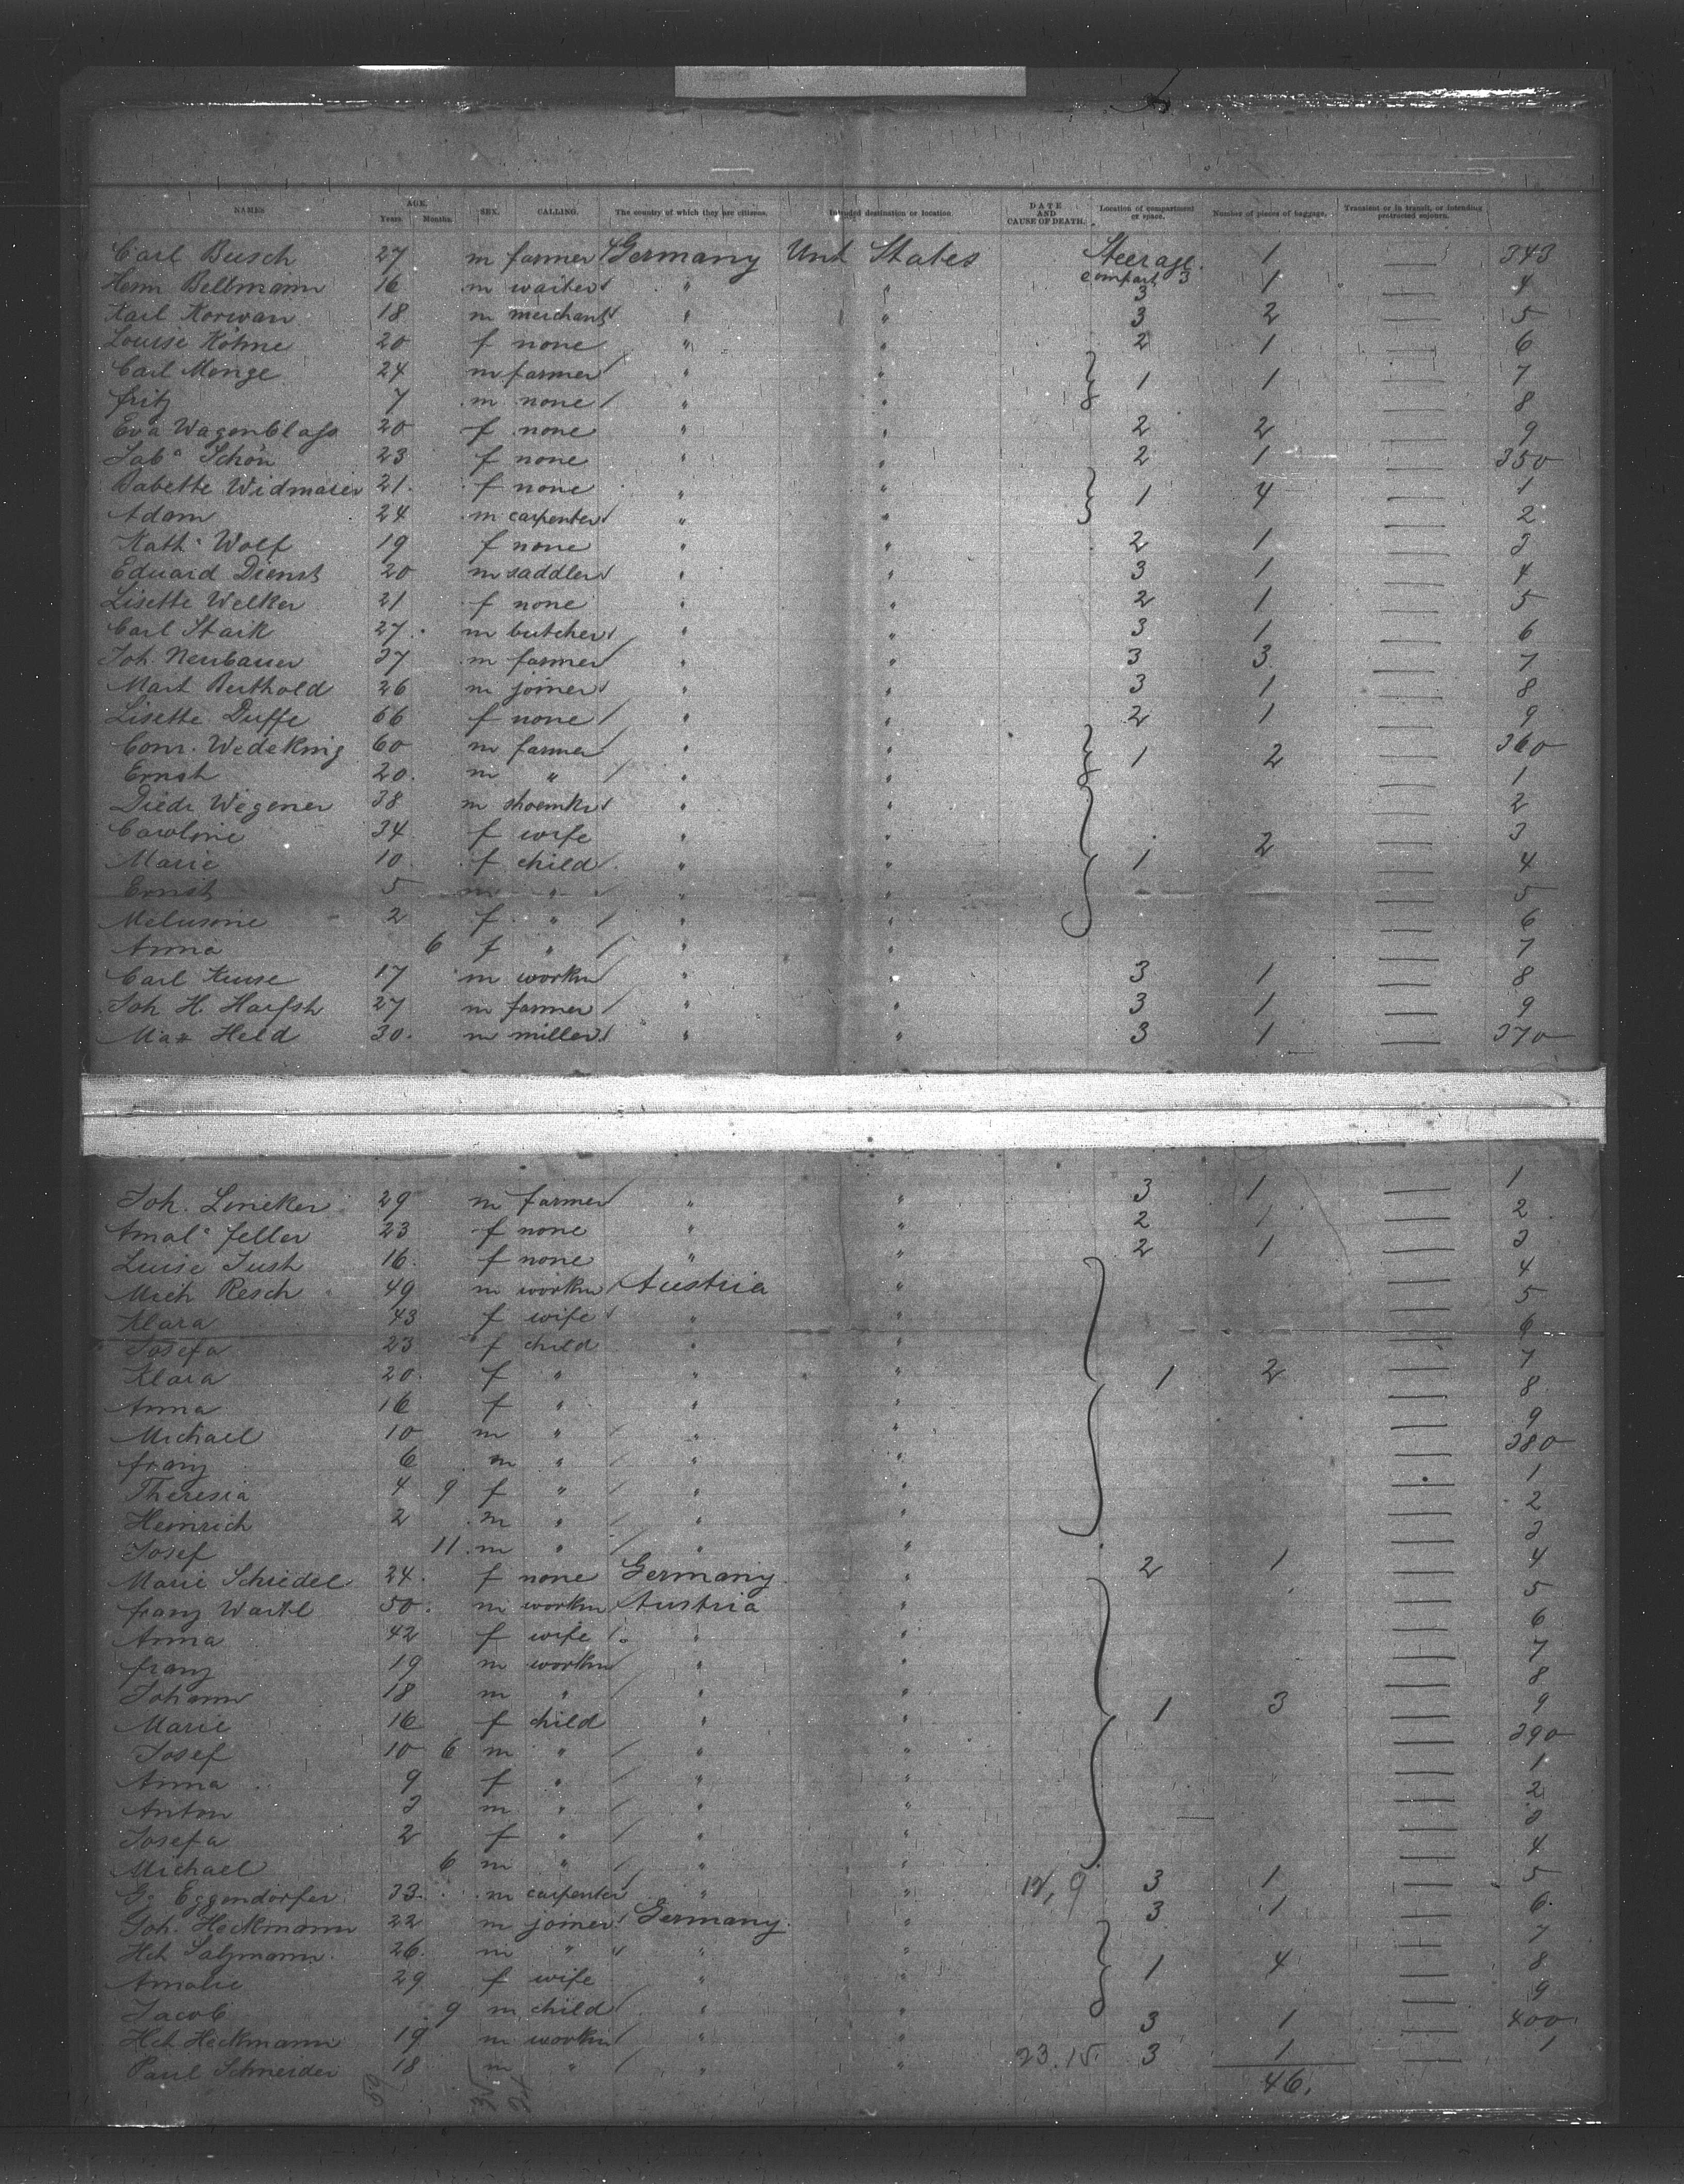 NAMES AGE. Years Months. SEX. CALLING. The country of which they are citizens. Intended destination or location DATE AND CAUSE OF DEATH. Location of compartment or space. Number of pieces of baggage. Transient or in transit, or intending protracted sojourn.
Carl Busch 27 m farmer Germany Unit States Steerage compart 3 1 — 343
Herm Bellmann 16 m waiter " " 3 1 — 4
Karl Korwan 18 m merchant " " 3 2 — 5
Louise Köhne 20 f none " " 2 1 — 6
Carl Menge 24 m farmer " " 1 1 — 7
Fritz 7 m none " " — 8
Eva Wagenblass 20 f none " " 2 2 — 9
Saba Schön 23 f none " " 2 1 — 350
Babette Widmaier 21 f none " " 1 4 — 1
Adam 24 m carpenter " " — 2
Katha Wolf 19 f none " " 2 1 — 3
Eduard Dienst 20 m saddler " " 3 1 — 4
Lisette Welker 21 f none " " 2 1 — 5
Carl Stark 27 m butcher " " 3 1 — 6
Joh. Neubauer 37 m farmer " " 3 3 — 7
Mart Berthold 26 m joiner " " 3 1 — 8
Lisette Duffe 66 f none " " 2 1 — 9
Conr. Wedeking 60 m farmer " " 1 2 — 360
Ernst 20 m " " " — 1
Diedr Wegener 38 m shoemkr " " — 2
Caroline 34 f wife " " — 3
Marie 10 f child " " 1 2 — 4
Ernst 5 m " " " — 5
Melusine 2 f " " " — 6
Anna 6 f " " " — 7
Carl Kruse 17 m workm " " 3 1 — 8
Joh H. Harfst 27 m farmer " " 3 1 — 9
Max Held 30 m miller " " 3 1 — 370
Joh. Lineker 29 m farmer " " 3 1 — 1
Amala Feller 23 f none " " 2 1 — 2
Luise Just 16 f none " " 2 1 — 3
Mich Resch 49 m workm Austria " — 4
Klara 43 f wife " " — 5
Josefa 23 f child " " — 6
Klara 20 f " " " 1 2 — 7
Anna 16 f " " " — 8
Michael 10 m " " " — 9
Franz 6 m " " " — 380
Theresia 4 9 f " " " — 1
Heinrich 2 m " " " — 2
Josef 11 m " " " — 3
Marie Schiedel 24 f none Germany " 2 1 — 4
Franz Wartl 50 m workm Austria " — 5
Anna 42 f wife " " — 6
Franz 19 m workm " " — 7
Johann 18 m " " " — 8
Marie 16 f child " " 1 3 — 9
Josef 10 6 m " " " — 390
Anna 9 f " " " — 1
Anton 3 m " " " — 2
Josefa 2 f " " " — 3
Michael 6 m " " " — 4
Gg Eggendorfer 33 m carpenter " " 3 1 — 5
Joh. Heckmann 22 m joiner Germany " 3 1 — 6
Hch Salzmann 26 m " " " — 7
Amalie 29 f wife " " 1 4 — 8
Jacob 9 m child " " — 9
Hch Heckmann 19 m workm " " 3 1 — 400
Paul Schneider 18 m " " " 23.15. 3 1 — 1
46.